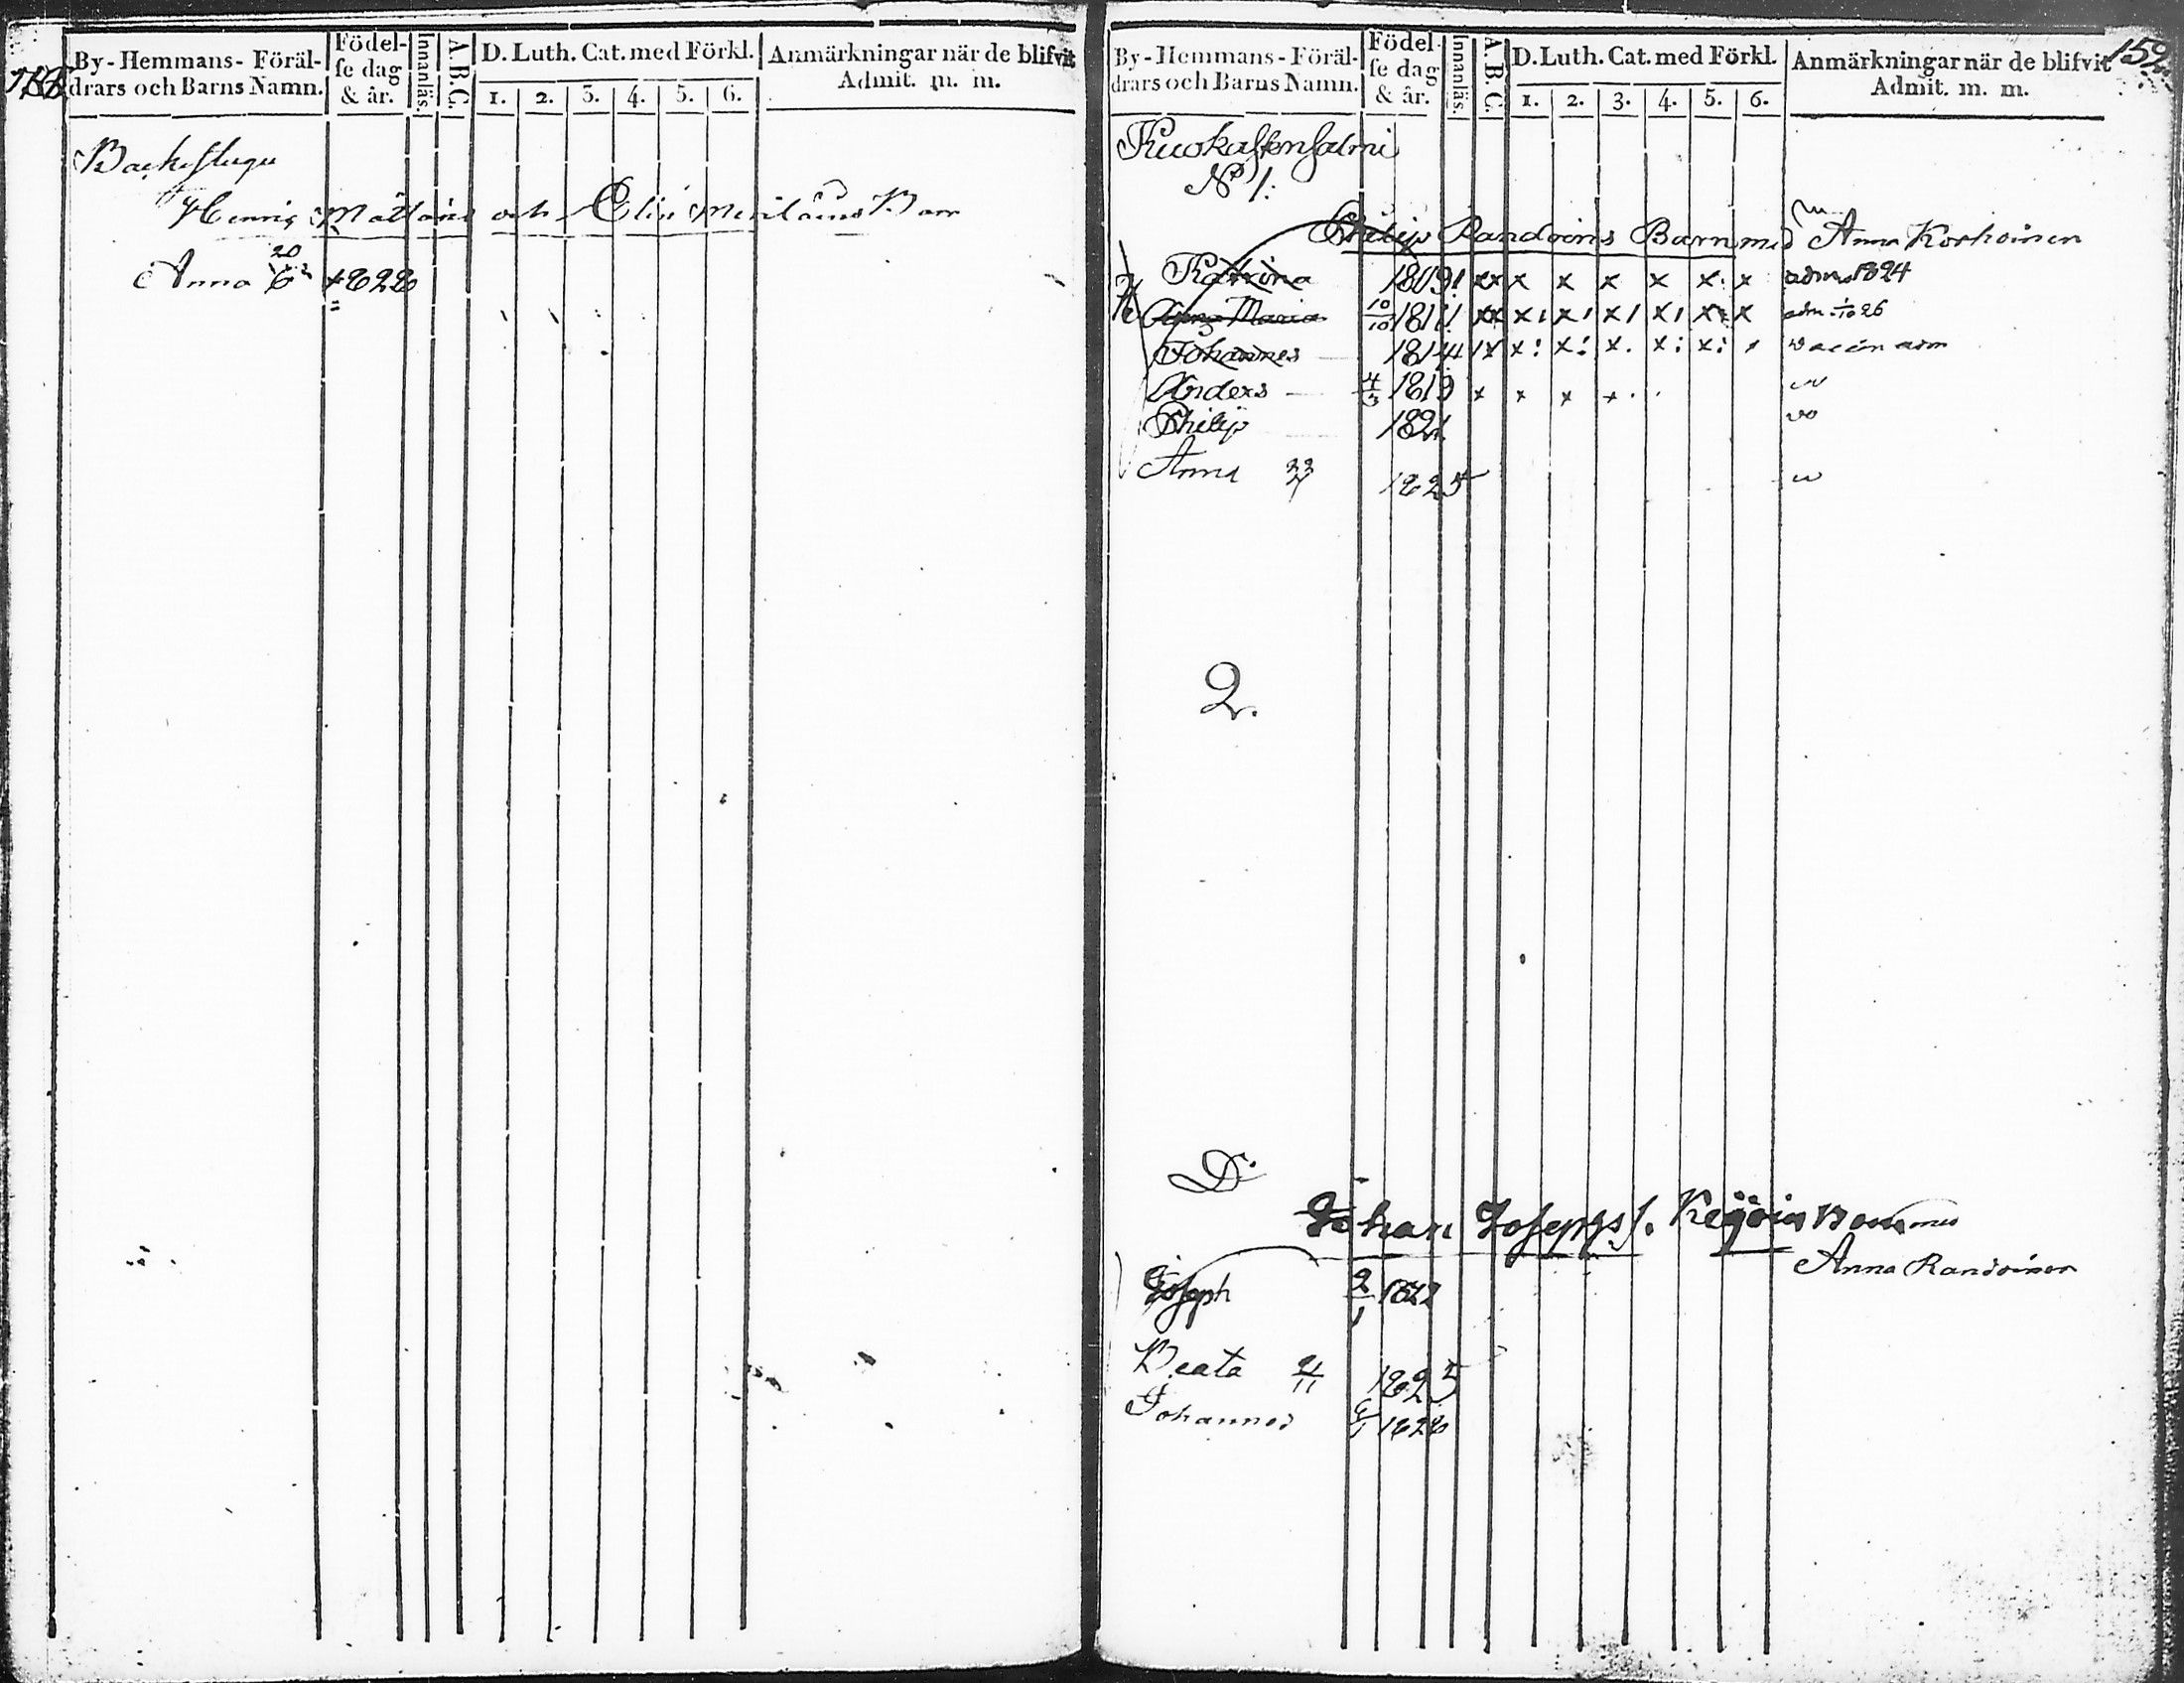 158
By-Hemmans-Föräl-
drars och Barns Namn.
Födel-
se dag
& år.
Innanläs.
A.B.C.
D. Luth. Cat. med Förkl.
1. 2. 3. 4. 5. 6.
Anmärkningar när de blifvit
Admit. m. m.
Henric och Elin Barn
Anna 20/6 1828
159.
By-Hemmans-Föräl-
drars och Barns Namn.
Födel-
se dag
& år.
Innanläs.
A.B.C.
D. Luth. Cat. med Förkl.
1. 2. 3. 4. 5. 6.
Anmärkningar när de blifvit
Admit. m. m.
Kuokastensalmi
No 1:
Philip Pandoins Barn med Anna Korhoinen
Katrina 1809 ! xx x x x x x. x adm 1824
Anna Maria 10/10 1811 ! xx x x x x x x adm 1/10 26
Johannes 1814 x x x x x x vaccin adm
Anders 4/3 1819 x x x x
Philip 1821
Anna 22/7 1825
2.
D:
Johan Josephss. Barn med
Anna Randoinen
Joseph 2/1 1822
Beata 1825
Johannes 1828